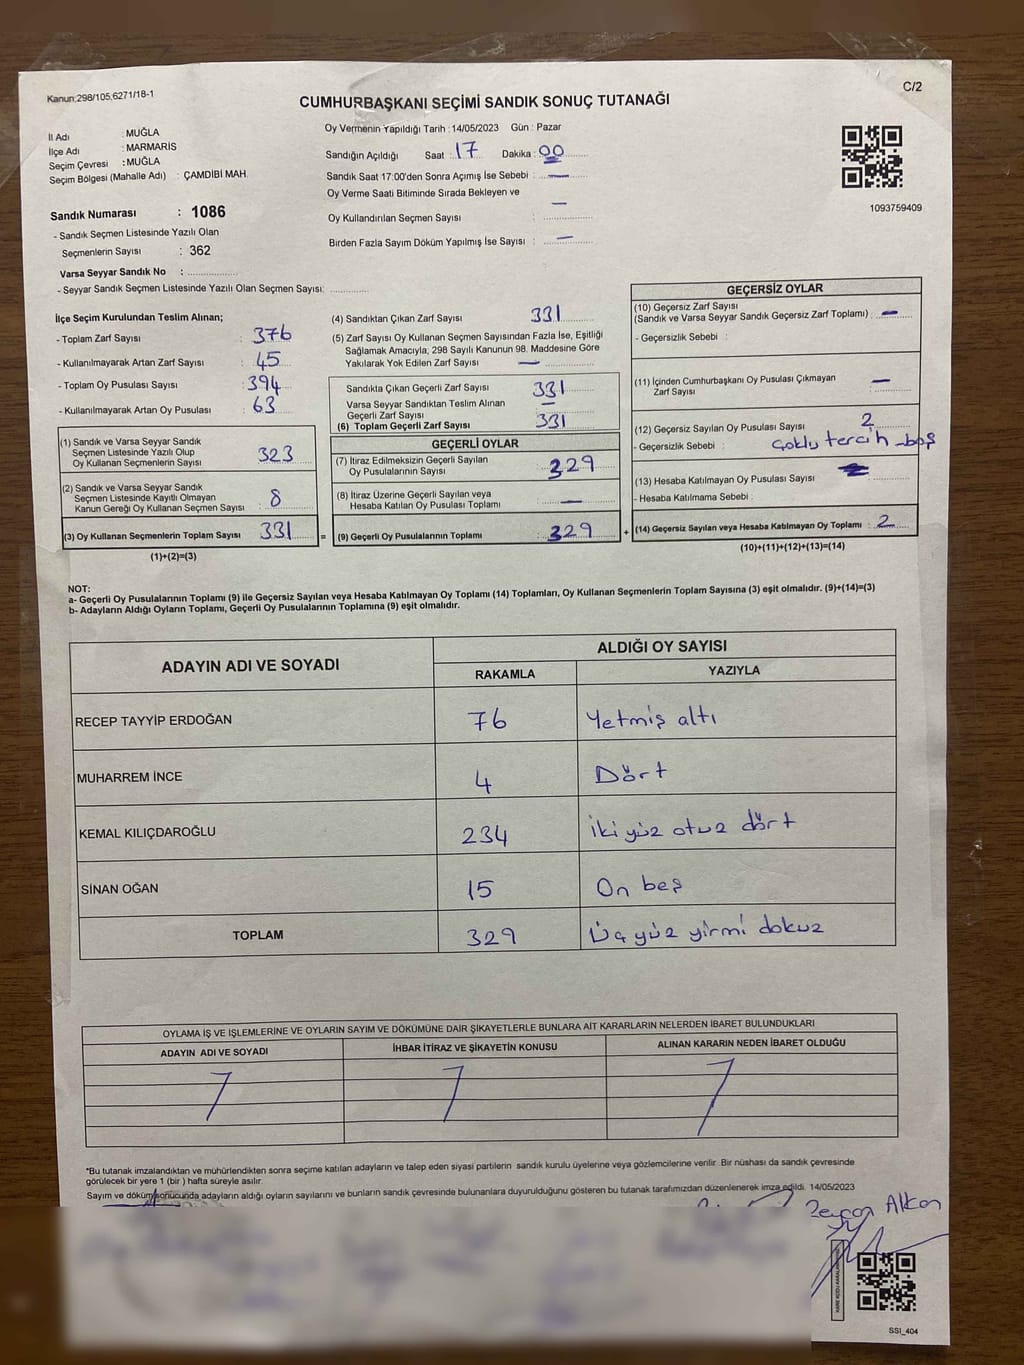 Kanun;298/105,6271/18-1
C/2
CUMHURBAŞKANI SEÇİMİ SANDIK SONUÇ TUTANAĞI
İl Adı : MUĞLA
İlçe Adı : MARMARİS
Seçim Çevresi : MUĞLA
Seçim Bölgesi (Mahalle Adı) : ÇAMDİBİ MAH.
Oy Vermenin Yapıldığı Tarih : 14/05/2023 Gün : Pazar
Sandığın Açıldığı Saat : 17 Dakika : 00
Sandık Saat 17:00'den Sonra Açımış İse Sebebi : —
Oy Verme Saati Bitiminde Sırada Bekleyen ve
Oy Kullandırılan Seçmen Sayısı : —
Birden Fazla Sayım Döküm Yapılmış İse Sayısı : —
1093759409
Sandık Numarası : 1086
- Sandık Seçmen Listesinde Yazılı Olan
Seçmenlerin Sayısı : 362
Varsa Seyyar Sandık No :
- Seyyar Sandık Seçmen Listesinde Yazılı Olan Seçmen Sayısı:
İlçe Seçim Kurulundan Teslim Alınan;
- Toplam Zarf Sayısı : 376
- Kullanılmayarak Artan Zarf Sayısı : 45
- Toplam Oy Pusulası Sayısı : 394
- Kullanılmayarak Artan Oy Pusulası : 63
(1) Sandık ve Varsa Seyyar Sandık
Seçmen Listesinde Yazılı Olup
Oy Kullanan Seçmenlerin Sayısı : 323
(2) Sandık ve Varsa Seyyar Sandık
Seçmen Listesinde Kayıtlı Olmayan
Kanun Gereği Oy Kullanan Seçmen Sayısı : 8
(3) Oy Kullanan Seçmenlerin Toplam Sayısı 331 =
(1)+(2)=(3)
(4) Sandıktan Çıkan Zarf Sayısı : 331
(5) Zarf Sayısı Oy Kullanan Seçmen Sayısından Fazla İse, Eşitliği
Sağlamak Amacıyla; 298 Sayılı Kanunun 98. Maddesine Göre
Yakılarak Yok Edilen Zarf Sayısı : —
Sandıkta Çıkan Geçerli Zarf Sayısı : 331
Varsa Seyyar Sandıktan Teslim Alınan
Geçerli Zarf Sayısı : —
(6) Toplam Geçerli Zarf Sayısı : 331
GEÇERLİ OYLAR
(7) İtiraz Edilmeksizin Geçerli Sayılan
Oy Pusulalarının Sayısı : 329
(8) İtiraz Üzerine Geçerli Sayılan veya
Hesaba Katılan Oy Pusulası Toplamı : —
(9) Geçerli Oy Pusulalarının Toplamı : 329 +
GEÇERSİZ OYLAR
(10) Geçersiz Zarf Sayısı
(Sandık ve Varsa Seyyar Sandık Geçersiz Zarf Toplamı) : —
- Geçersizlik Sebebi :
(11) İçinden Cumhurbaşkanı Oy Pusulası Çıkmayan
Zarf Sayısı : —
(12) Geçersiz Sayılan Oy Pusulası Sayısı : 2
- Geçersizlik Sebebi : Çoklu tercih - boş
(13) Hesaba Katılmayan Oy Pusulası Sayısı :
- Hesaba Katılmama Sebebi :
(14) Geçersiz Sayılan veya Hesaba Katılmayan Oy Toplamı : 2
(10)+(11)+(12)+(13)=(14)
NOT:
a- Geçerli Oy Pusulalarının Toplamı (9) ile Geçersiz Sayılan veya Hesaba Katılmayan Oy Toplamı (14) Toplamları, Oy Kullanan Seçmenlerin Toplam Sayısına (3) eşit olmalıdır. (9)+(14)=(3)
b- Adayların Aldığı Oyların Toplamı, Geçerli Oy Pusulalarının Toplamına (9) eşit olmalıdır.
ADAYIN ADI VE SOYADI
ALDIĞI OY SAYISI
RAKAMLA YAZIYLA
RECEP TAYYİP ERDOĞAN 76 Yetmiş altı
MUHARREM İNCE 4 Dört
KEMAL KILIÇDAROĞLU 234 İki yüz otuz dört
SİNAN OĞAN 15 On beş
TOPLAM 329 Üç yüz yirmi dokuz
OYLAMA İŞ VE İŞLEMLERİNE VE OYLARIN SAYIM VE DÖKÜMÜNE DAİR ŞİKAYETLERLE BUNLARA AİT KARARLARIN NELERDEN İBARET BULUNDUKLARI
ADAYIN ADI VE SOYADI İHBAR İTİRAZ VE ŞİKAYETİN KONUSU ALINAN KARARIN NEDEN İBARET OLDUĞU
*Bu tutanak imzalandıktan ve mühürlendikten sonra seçime katılan adayların ve talep eden siyasi partilerin sandık kurulu üyelerine veya gözlemcilerine verilir. Bir nüshası da sandık çevresinde
görülecek bir yere 1 (bir ) hafta süreyle asılır.
Sayım ve döküm sonucunda adayların aldığı oyların sayılarını ve bunların sandık çevresinde bulunanlara duyurulduğunu gösteren bu tutanak tarafımızdan düzenlenerek imza edildi. 14/05/2023
SSI_404